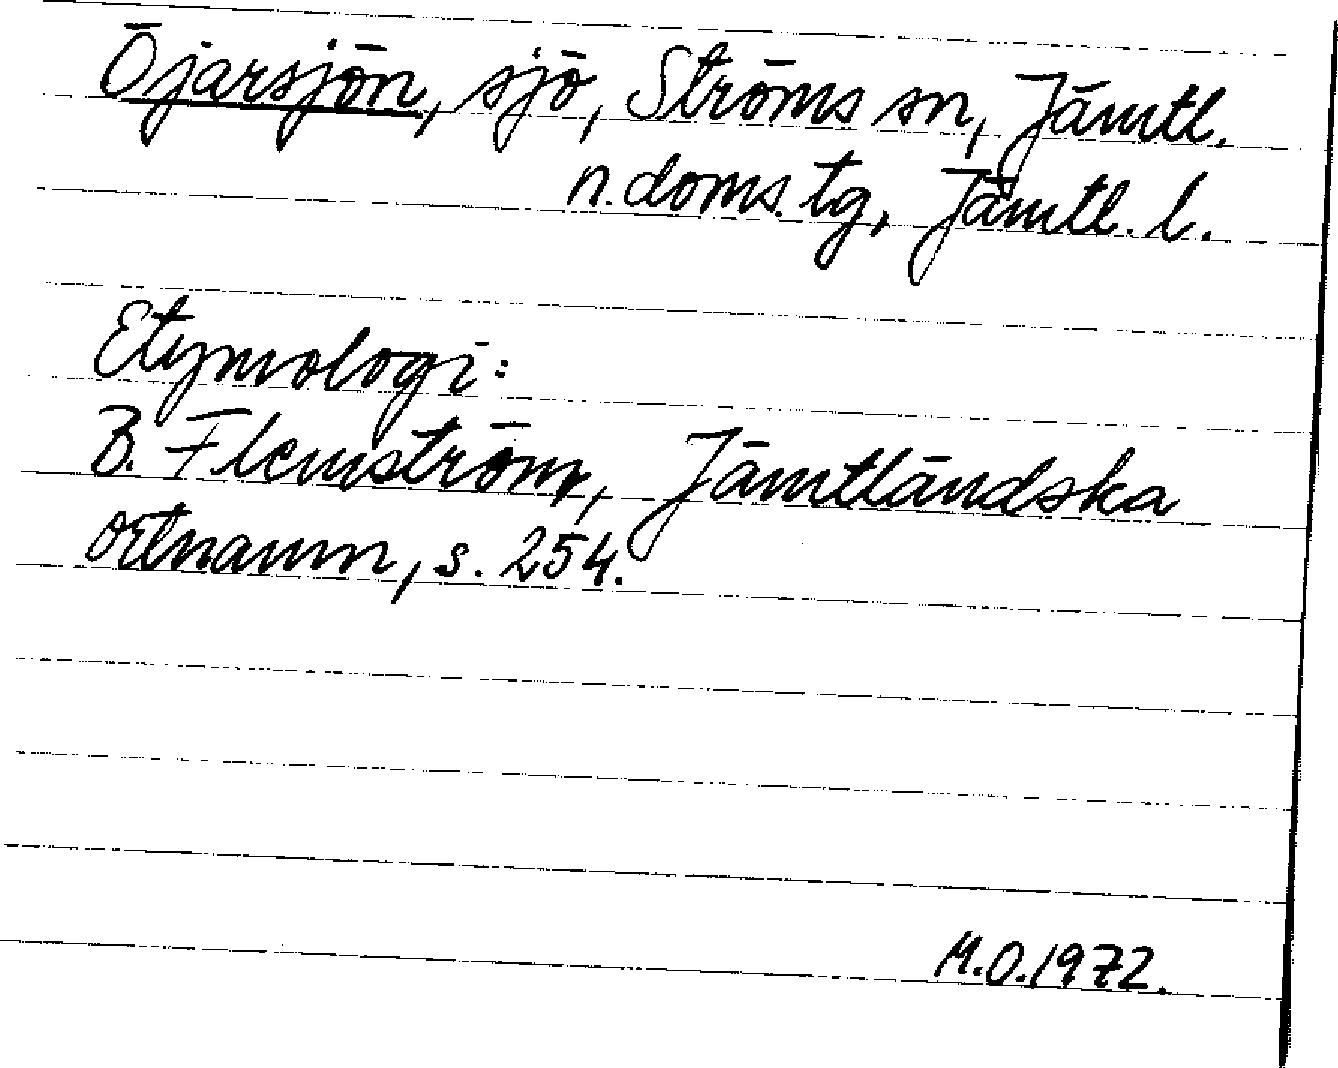 Öjarsjön, sjö, Ströms sn, Jämtl.
n. doms. tg, Jämtl. l.
Etymologi:
B. Flemström, Jämtländska
ortnamn, s. 254.
M.O. 1972.